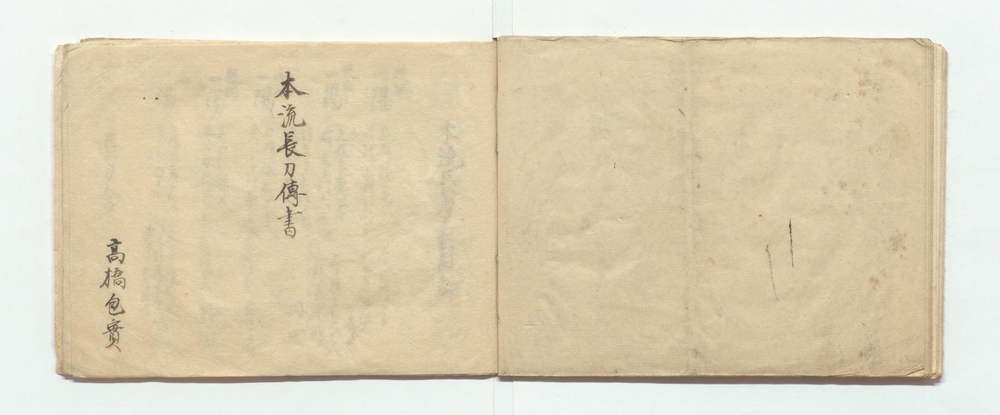 本流長刀傳書
高橋包實